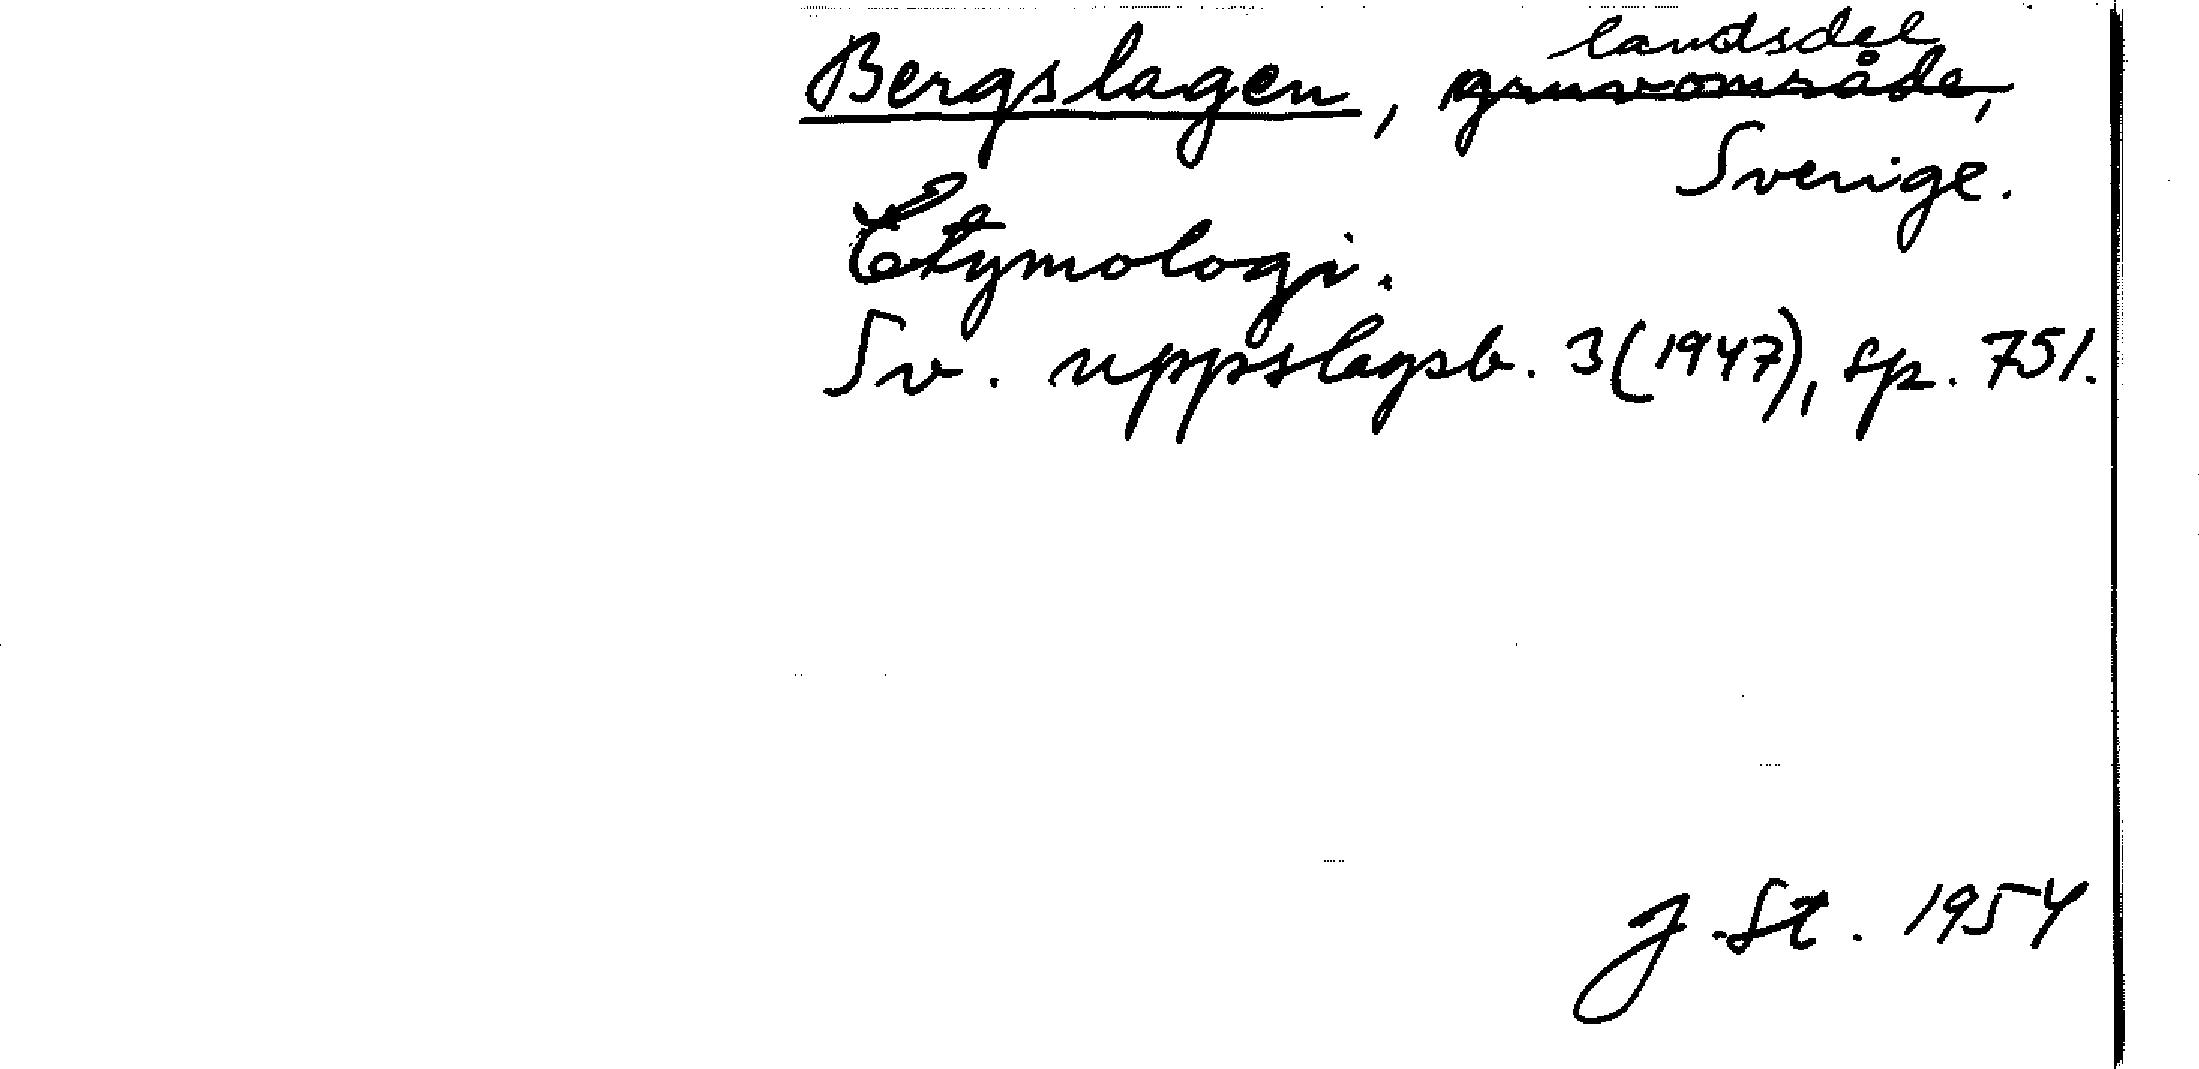 landsdel
Bergslagen, gruvområde,
Sverige.
Etymologi.
Sv. uppslagsb. 3(1947), sp. 751.
J. St. 1954